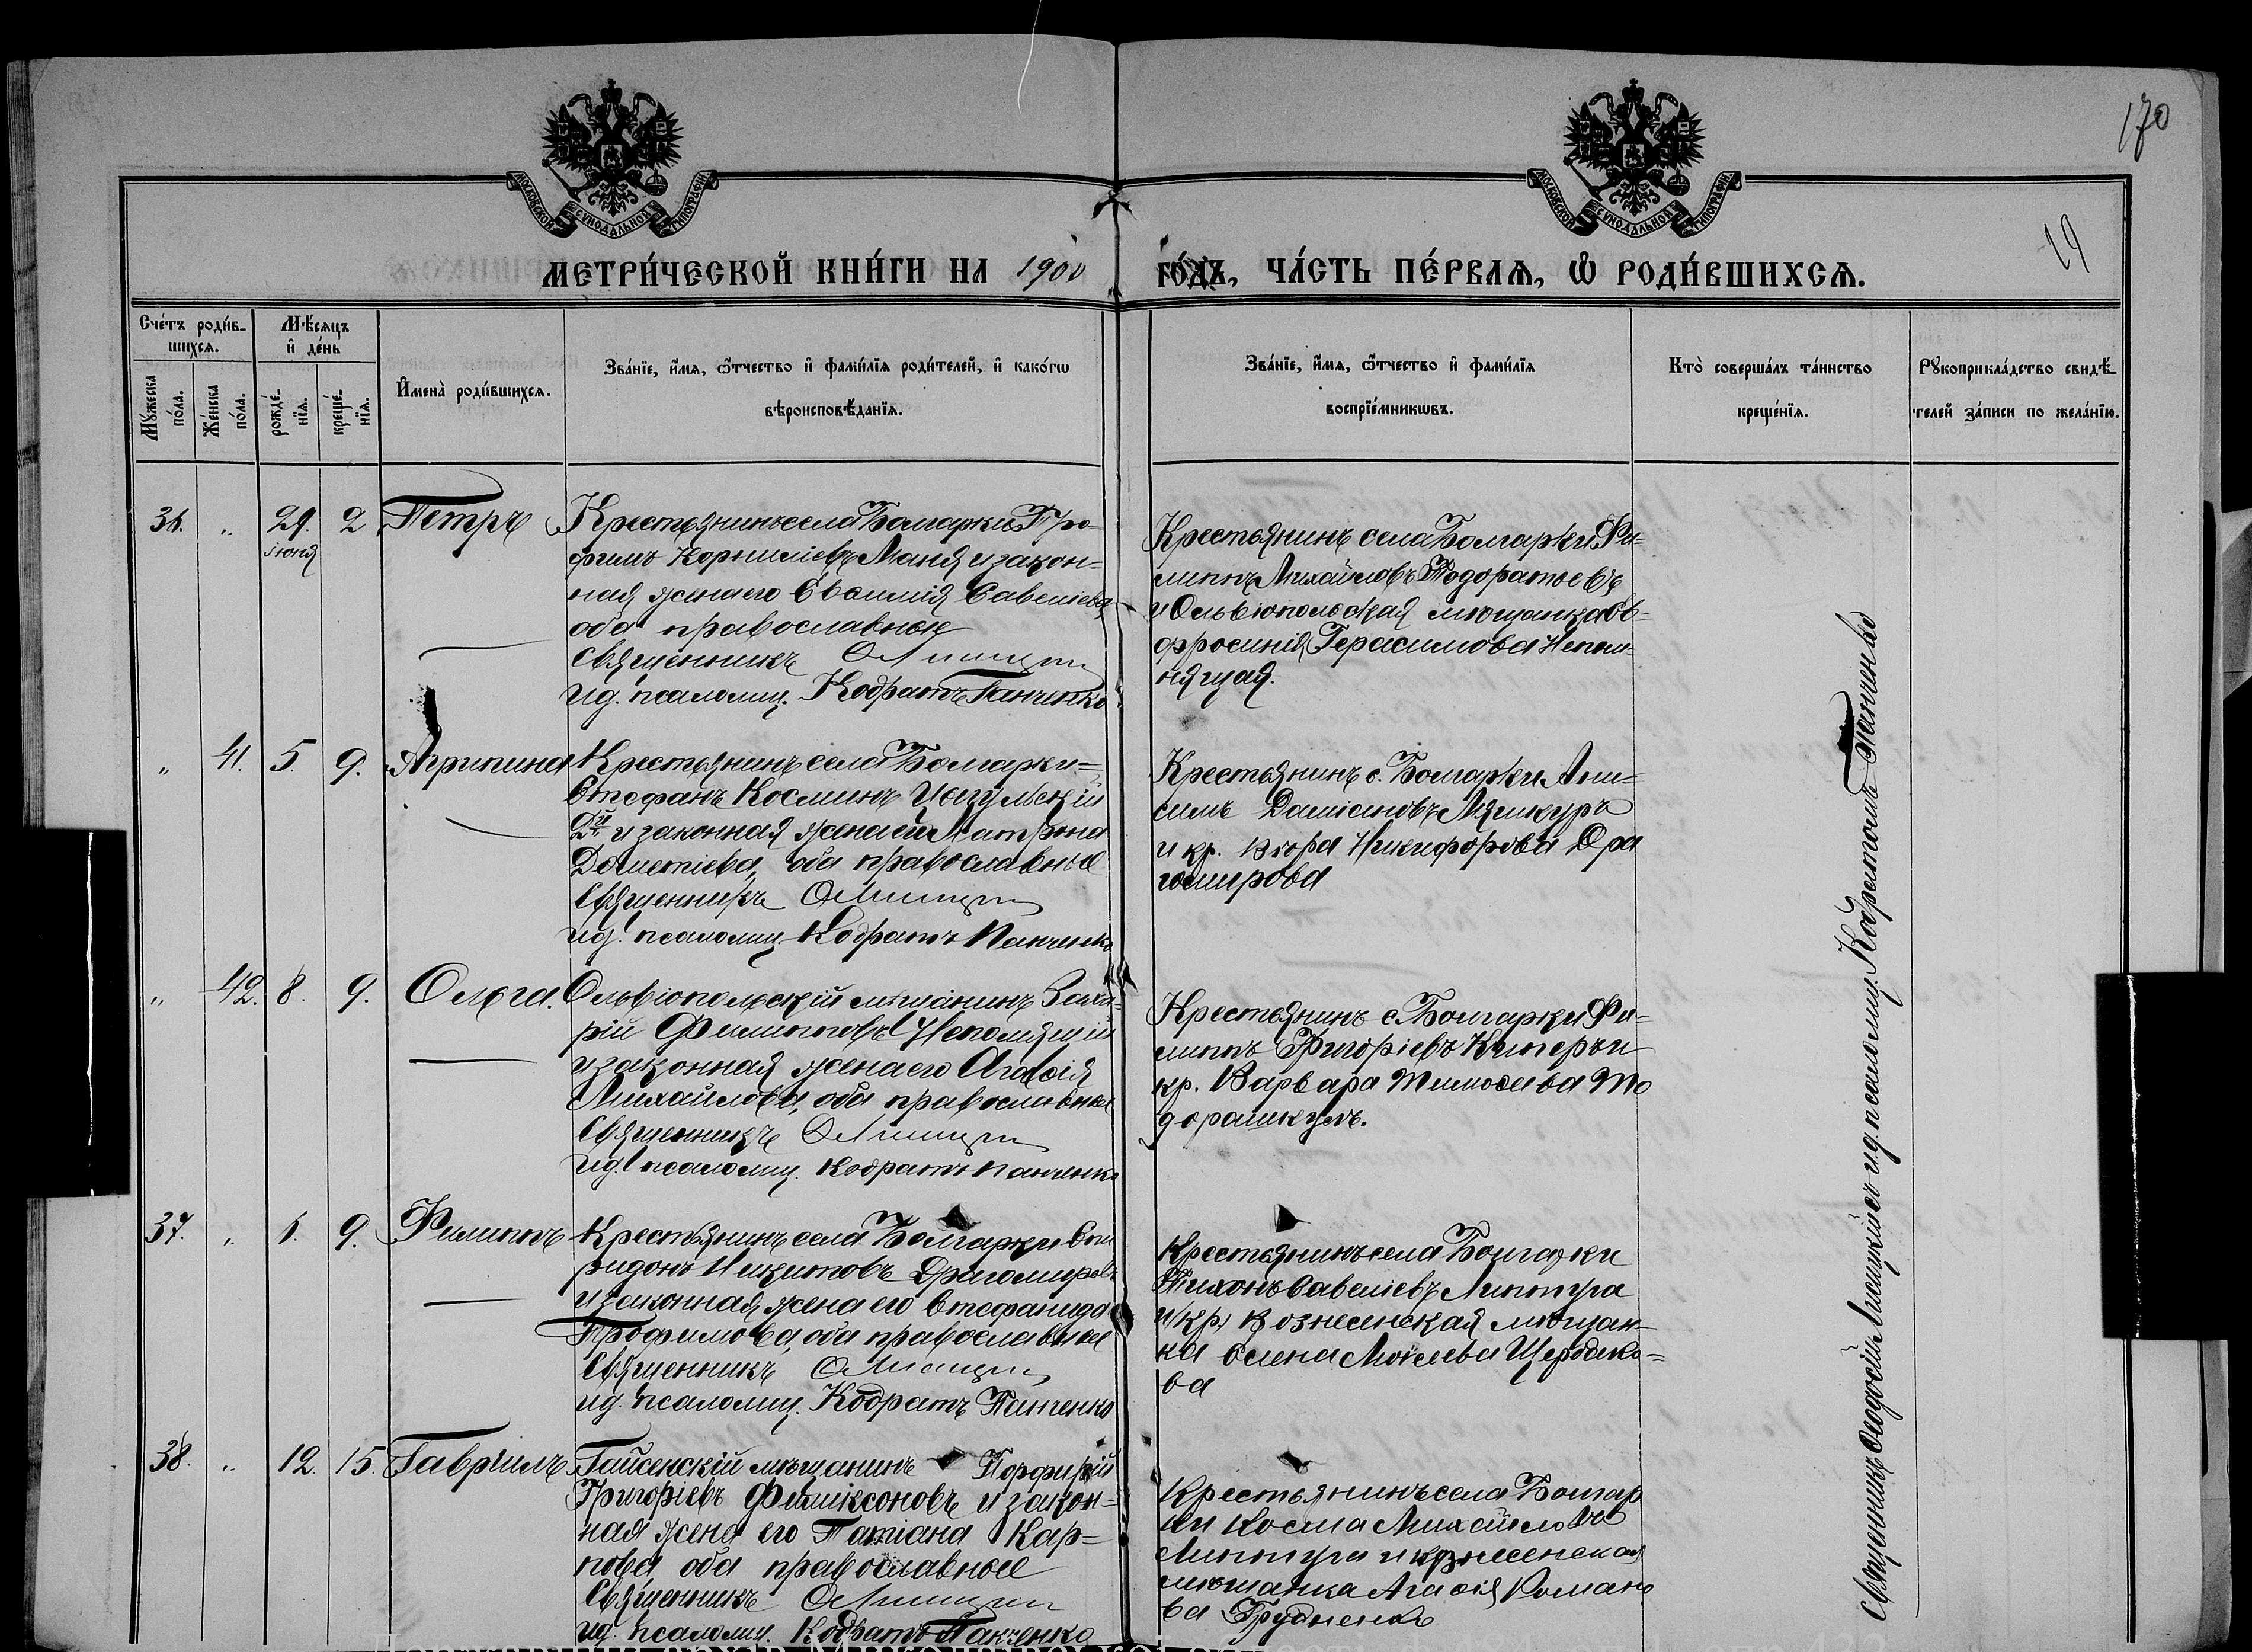 170
19
МОСКОВСКОЙ СУНОДАЛЬНОЙ ТИПОГРАФІИ
МОСКОВСКОЙ СУНОДАЛЬНОЙ ТИПОГРАФІИ
МЕТРИ́ЧЕСКОЙ КНИ́ГИ НА 1900
ГО́ДЪ, ЧА́СТЬ ПЕ́РВАѦ, Ѽ РОДИ́ВШИХСѦ.
Сче́тъ роди́в-
шихсѧ.
Мꙋ́жеска
по́ла.
Же́нска
по́ла.
Мѣ́сѧцъ
и҆ де́нь
рожде́-
нїѧ.
креще́-
нїѧ.
И҆мена̀ роди́вшихсѧ.
Зва́нїе, и҆́мѧ, ѻ҆́тчество и҆ фами́лїѧ роди́телей, и҆ како́гѡ
вѣроисповѣ́данїѧ.
Зва́нїе, и҆́мѧ, ѻ҆́тчество и҆ фами́лїѧ
воспрїе́мникѡвъ.
Кто̀ соверша́лъ та́инство
креще́нїѧ.
Рꙋкоприкла́дство свидѣ́-
телей за́писи по жела́нїю.
36. „ 29. 2 Петръ
іюня
Крестьянинъ села Болгарки Тро-
фимъ Корниліевъ Маня и закон-
ная жена его Евѳимія Савеліева,
оба православные
Священникъ Ѳ Лисицкій
и.д. псаломщ. Кодратъ Панченко
Крестьянинъ села Болгарки Фи-
липпъ Михайловъ Тодоратьевъ
и Ольвіопольская мѣщанка Ев-
фросинія Герасимова Непом-
нящая.
„ 41. 5. 9. Агрипина
Крестьянинъ села Болгарки
Стефанъ Косминъ
2й и законная жена его Матрона
Дометіева, оба православные
Священникъ Ѳ Лисицкій
и.д. псаломщ. Кодратъ Панченко
Крестьянинъ с. Болгарки Ани-
симъ Даміановъ
и кр. Вѣра Никифорова Дра
гомирова
„ 42. 8. 9. Ольга.
Ольвіопольскій мѣщанинъ Заха-
рій Филипповъ Непомящій
и законная жена его Агафія
Михайлова, оба православные
Священникъ Ѳ Лисицкій
и.д. псаломщ. Кодратъ Панченко
Крестьянинъ с. Болгарки Фи-
липпъ Григоріевъ Киперъ и
кр. Варвара Тимоѳеева То
дорашкулъ.
37. „ 1. 9. Филиппъ
Крестьянинъ села Болгарки Спи
ридонъ Никитовъ Драгомировъ
и законная жена его Стефанида
Трофимова, оба православные
Священникъ Ѳ Лисицкій
и.д. псаломщ. Кодратъ Панченко
Крестьянинъ села Болгарки
Тихонъ Савеліевъ Липтуга
и кр. Вознесенская мѣщан-
ка Елена Моисеева Щербако-
ва
38. „ 12. 15. Гавріилъ
Гайсенскій мѣщанинъ Порфирій
Григоріевъ Филиксоновъ и закон-
ная жена его Татіана Кар-
пова, оба православные
Священникъ Ѳ Лисицкій
и.д. псаломщ. Кодратъ Панченко
Крестьянинъ села Болгар
ки Косма Михайловъ
Липтуга и вознесенская
мѣщанка Агафія Романо
ва Грудненко
Священникъ Ѳеодосій Лисицкій съ и.д. псаломщ. Кодратомъ Панченко